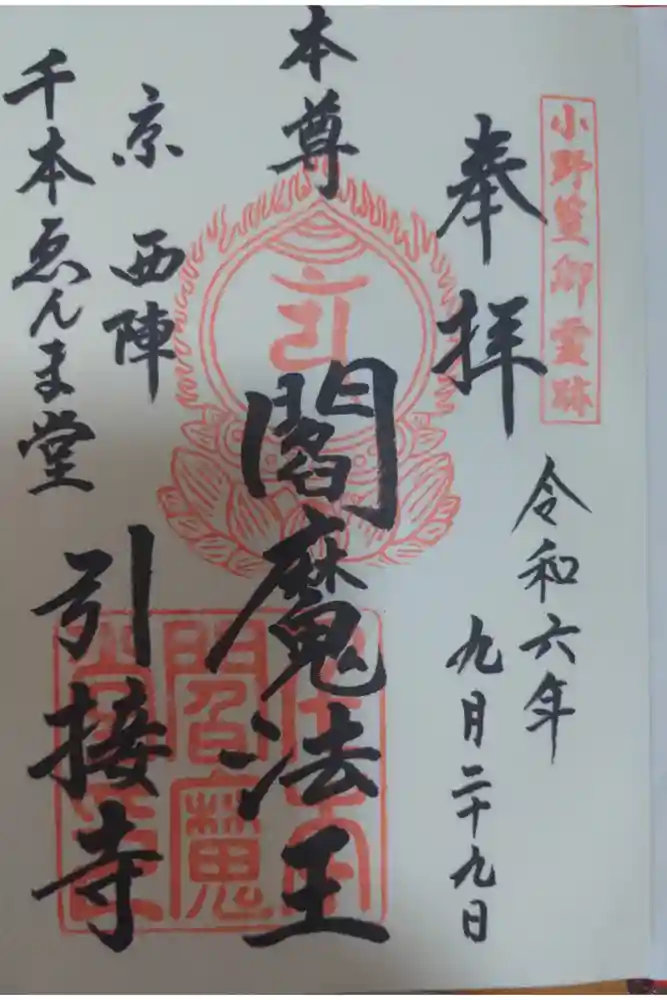 小野篁卿霊跡
奉拝
令和六年
九月二十九日
本尊
閻魔法王
京西陣
千本ゑんま堂
引接寺